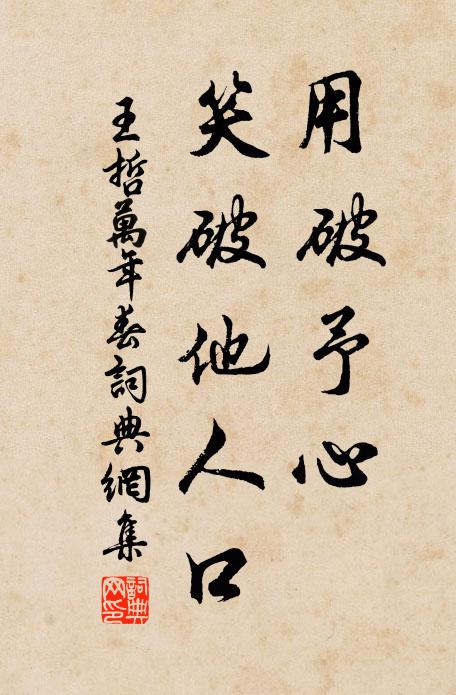 用破予心
笑破他人口
王哲萬年春詞典網集
詞典网印